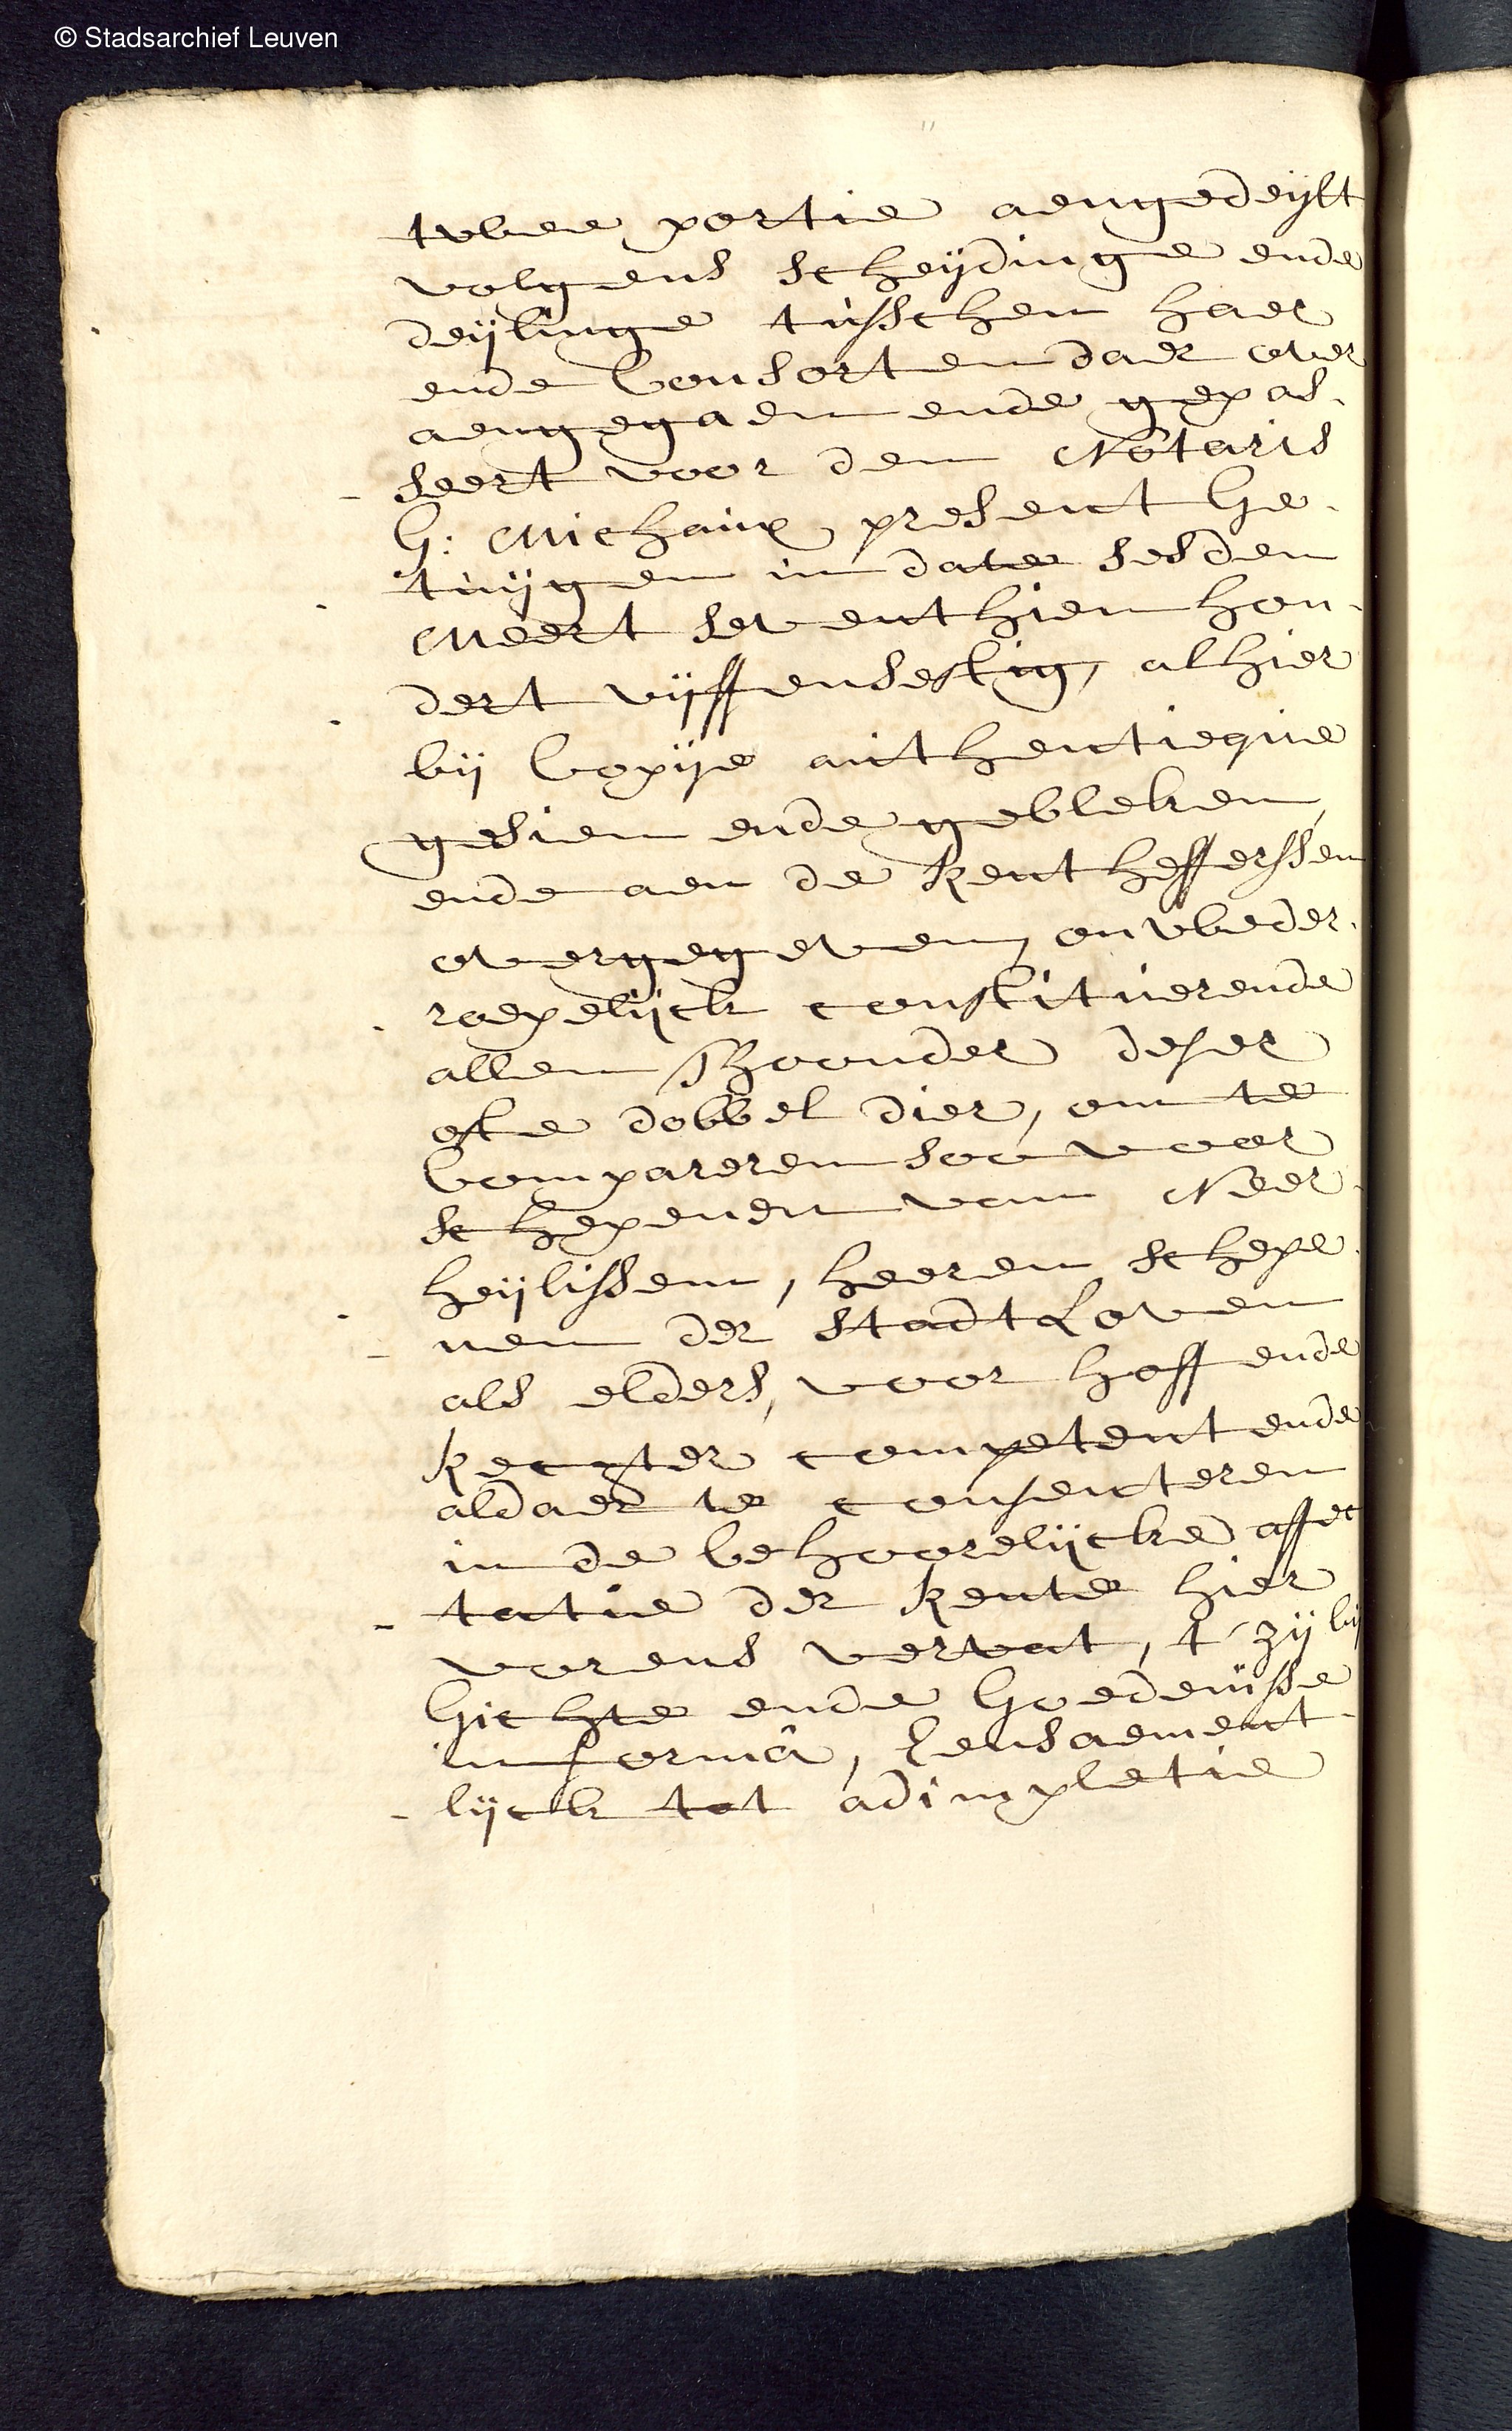 © Stadsarchief Leuven
twee portie aengedeijlt
volgens scheijdinge ende
deijlinge tusschen haer
ende Consorten daer over
aengegaen ende gepas-
seert voor den Notaris
G: Michaux present Ge-
tuijgen in date sesden
Meert seventhien hon-
dert vijffensestig, alhier
bij Copije authentieque
gesien ende gebleken,
ende aen de Rentheffersen
overgegeven, onweder-
roepelijck constituerende
allen thoonder deser
ofte dobbel dier, om te
Compareren soo voor
schepenen van Neer-
heijlissem, heeren schepe-
nen der stadt Loven
als elders, voor hoff ende
Rechter competent ende
aldaer te consenteren
in de behoorelijcke affec
tatie der Rente hier
vorens vervat, t' zij bij
Gichte ende Goedenisse
in formâ, Eensaement-
lijck tot adimpletie